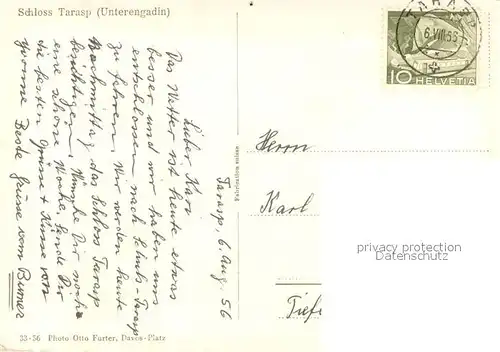 Schloss Tarasp (Unterengadin)
TARASP
6.VIII.56
10 HELVETIA
Tarasp, 6 Aug. 56
Lieber Karl
Das Wetter ist heute etwas
besser und wir haben uns
entschlossen nach Schuls-Tarasp
zu fahren. Wir werden heute
Nachmittag das Schloss Tarasp
besichtigen. Wünsche Dir noch
eine schöne Woche. Sende Dir
die besten Grüsse + Küsse von
Yvonne Beste Grüsse vom
Fabrication suisse
Herrn
Karl
privacy protection
Datenschutz
33-56 Photo Otto Furter, Davos-Platz